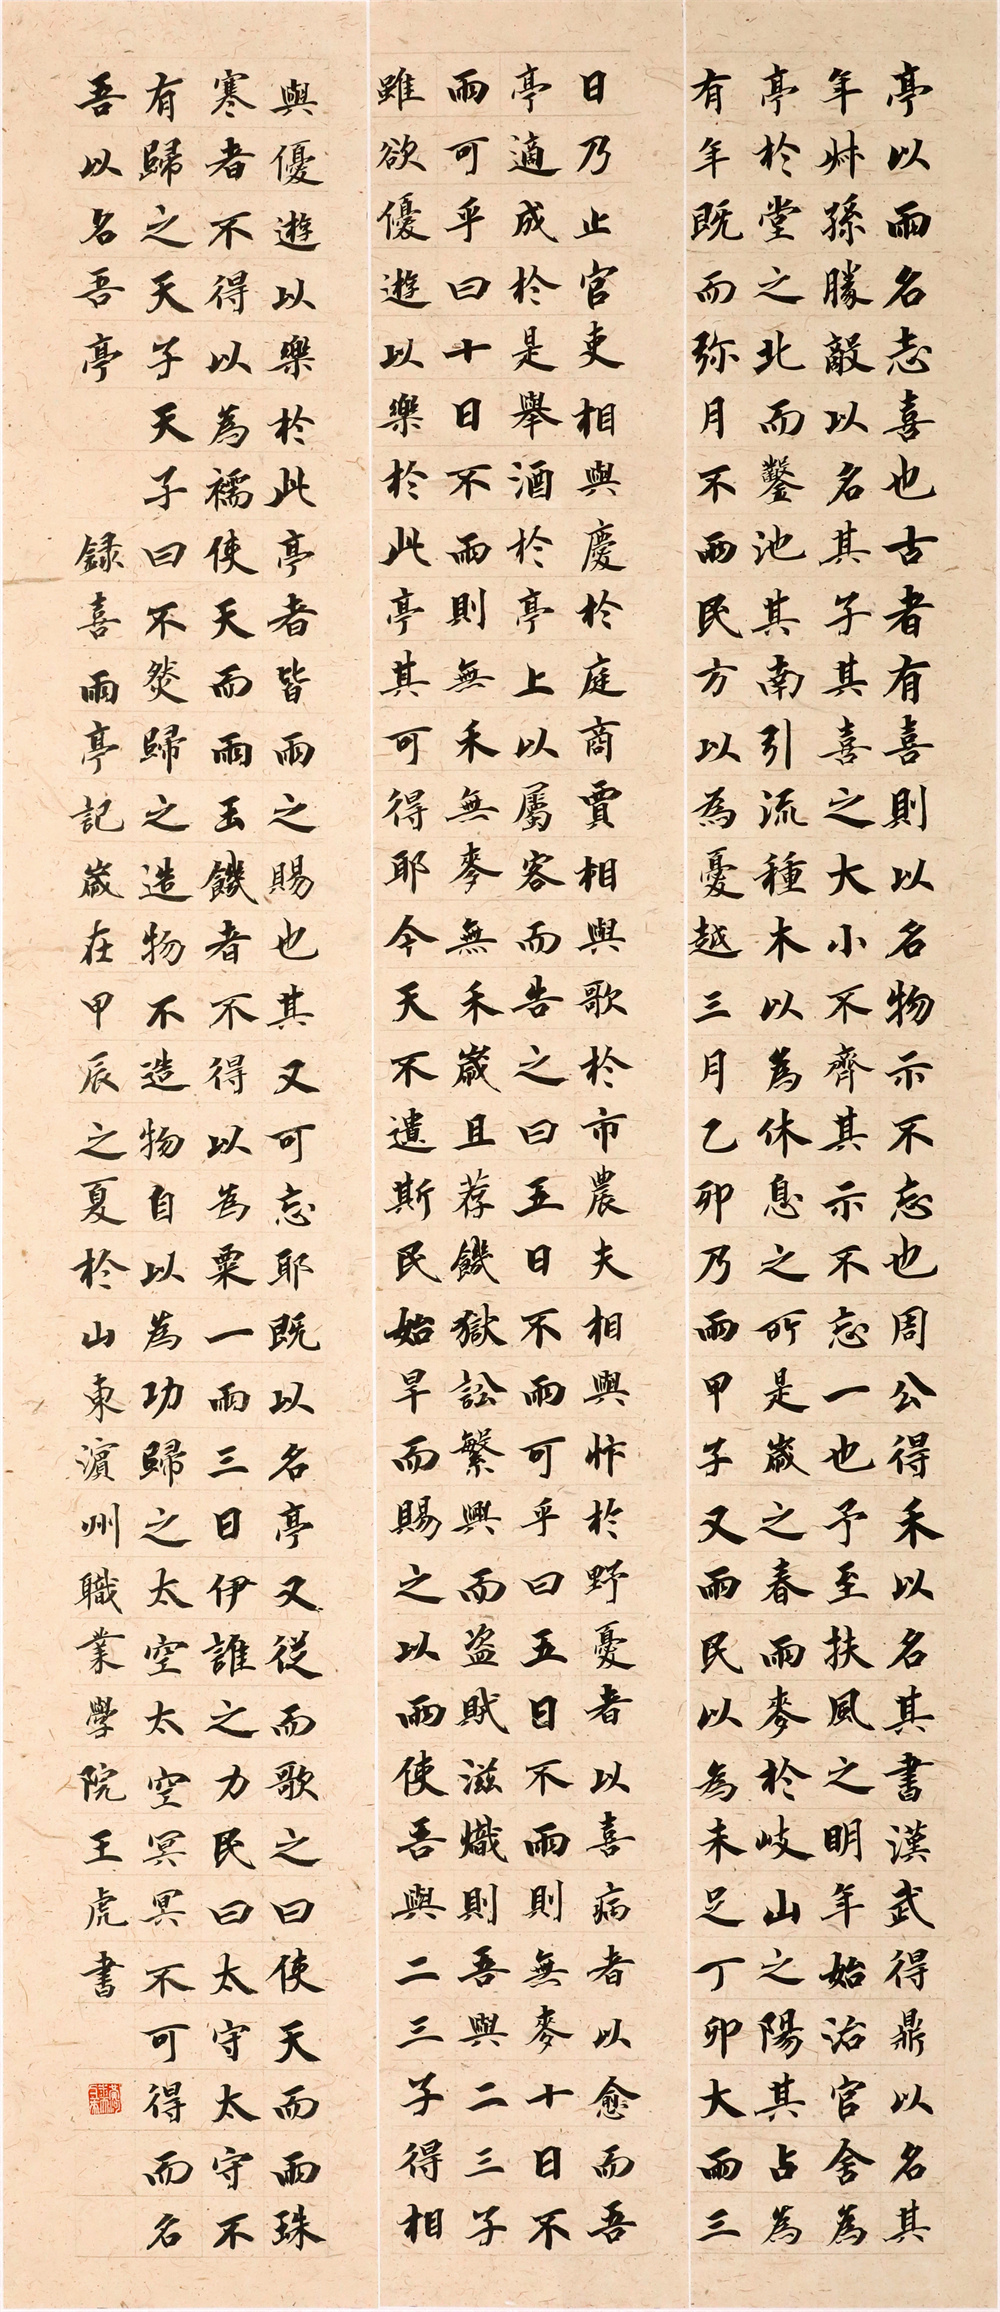 亭以雨名志喜也古者有喜則以名物示不忘也周公得禾以名其書漢武得鼎以名其
年叔孫勝敵以名其子其喜之大小不齊其示不忘一也予至扶風之明年始治官舍為
亭於堂之北而鑿池其南引流種木以為休息之所是歲之春雨麥於岐山之陽其占為
有年既而弥月不雨民方以為憂越三月乙卯乃雨甲子又雨民以為未足丁卯大雨三
日乃止官吏相與慶於庭商賈相與歌於市農夫相與忭於野憂者以喜病者以愈而吾
亭適成於是舉酒於亭上以屬客而告之曰五日不雨可乎曰五日不雨則無麥十日不
雨可乎曰十日不雨則無禾無麥無禾歲且荐饑獄訟繁興而盗賊滋熾則吾與二三子
雖欲優遊以樂於此亭其可得耶今天不遺斯民始旱而賜之以雨使吾與二三子得相
與優遊以樂於此亭者皆雨之賜也其又可忘耶既以名亭又從而歌之曰使天而雨珠
寒者不得以為襦使天而雨玉饑者不得以為粟一雨三日伊誰之力民曰太守太守不
有歸之天子天子曰不然歸之造物不造物自以為功歸之太空太空冥冥不可得而名
吾以名吾亭
録喜雨亭記歲在甲辰之夏於山東濵州職業學院王虎書